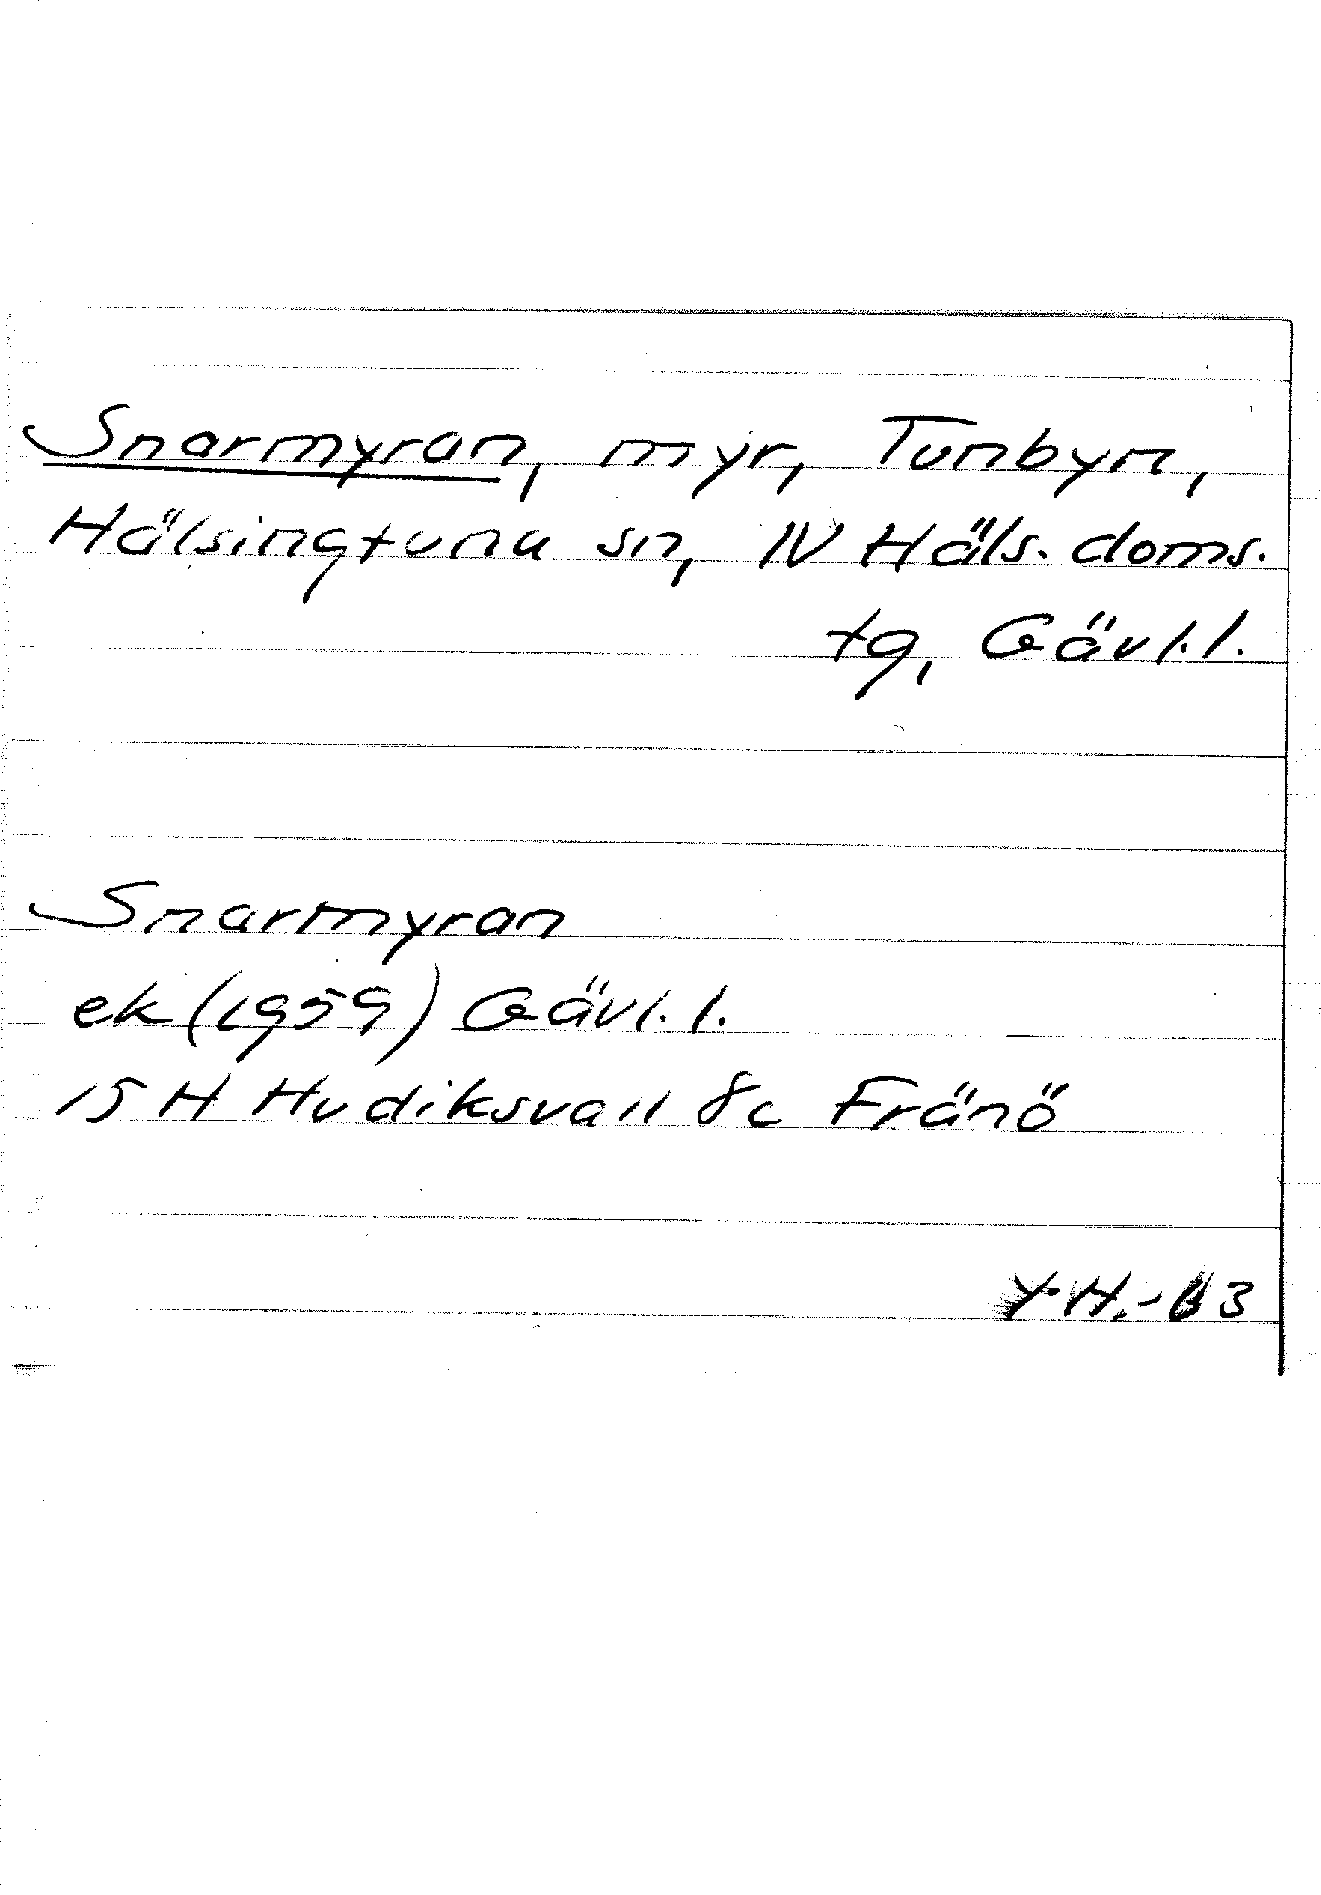 Snarmyran, myr, Tunbyn,
Hälsingtuna sn, IV Häls. doms.
tg, Gävl.l.
Snarmyran
ek (1959) Gävl. l.
15 H Hudiksvall 8c Fränö
Y.H.-63